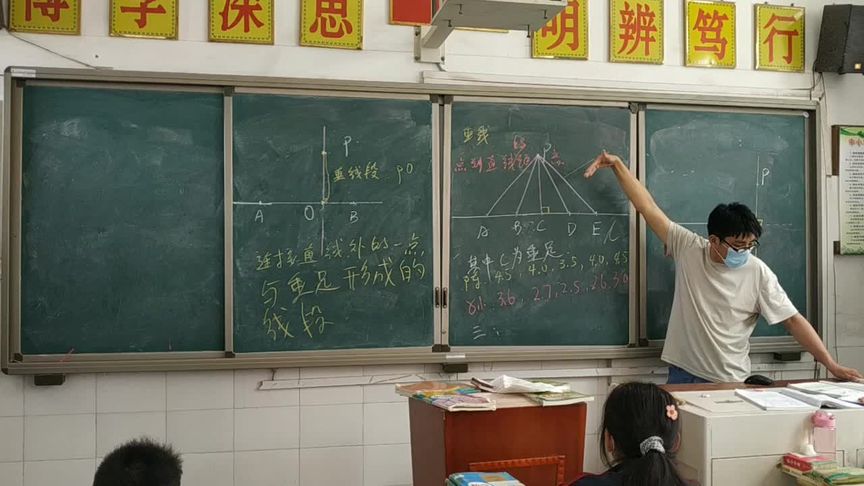 博 学 深 思 明 辨 笃 行
P
垂线段 PO
A O B
连接直线外的一点
与垂足形成的
线段
垂线
点到直线
P
A B C D E l
其中C为垂足
4.5, 4.0, 3.5, 4.0, 4.5
3.6, 2.7, 2.5, 2.6, 3.0
三:
P